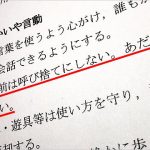 いや言動
言葉を使うよう心がけ、誰も
会話できるようにする。
前は呼び捨てにしない。あだ
い。
・遊具等は使い方を守り、